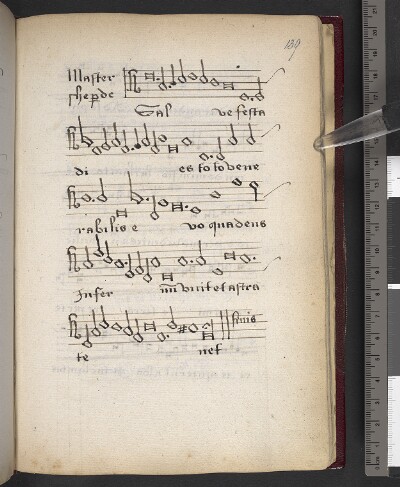 139
Master
shepde
Sal ve festa
di es toto vene
rabilis e vo qua deus
Infer nū vicit et astra
te net
finis